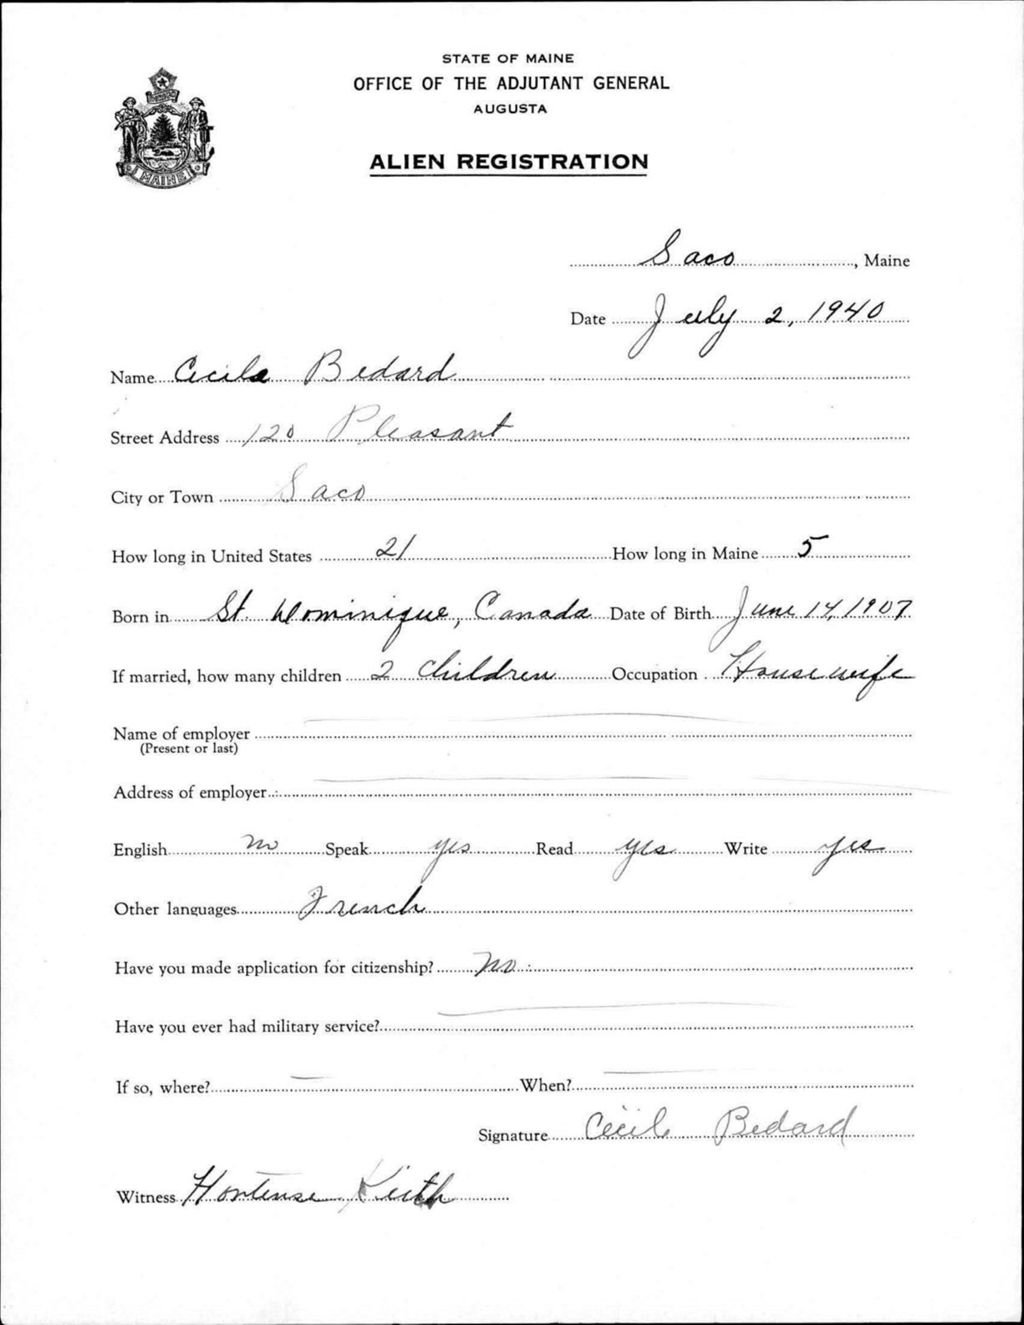 STATE OF MAINE
OFFICE OF THE ADJUTANT GENERAL
AUGUSTA
MAINE
ALIEN REGISTRATION
Saco, Maine
Date July 2, 1940
Name Cecile Bedard
Street Address 120 Pleasant
City or Town Saco
How long in United States 21 How long in Maine 5
Born in St. Dominique, Canada Date of Birth June 14, 1907
If married, how many children 2 children Occupation Housewife
Name of employer
(Present or last)
Address of employer
English no Speak yes Read yes Write yes
Other languages French
Have you made application for citizenship? no
Have you ever had military service?
If so, where? When?
Signature Cécile Bedard
Witness Hortense Keith